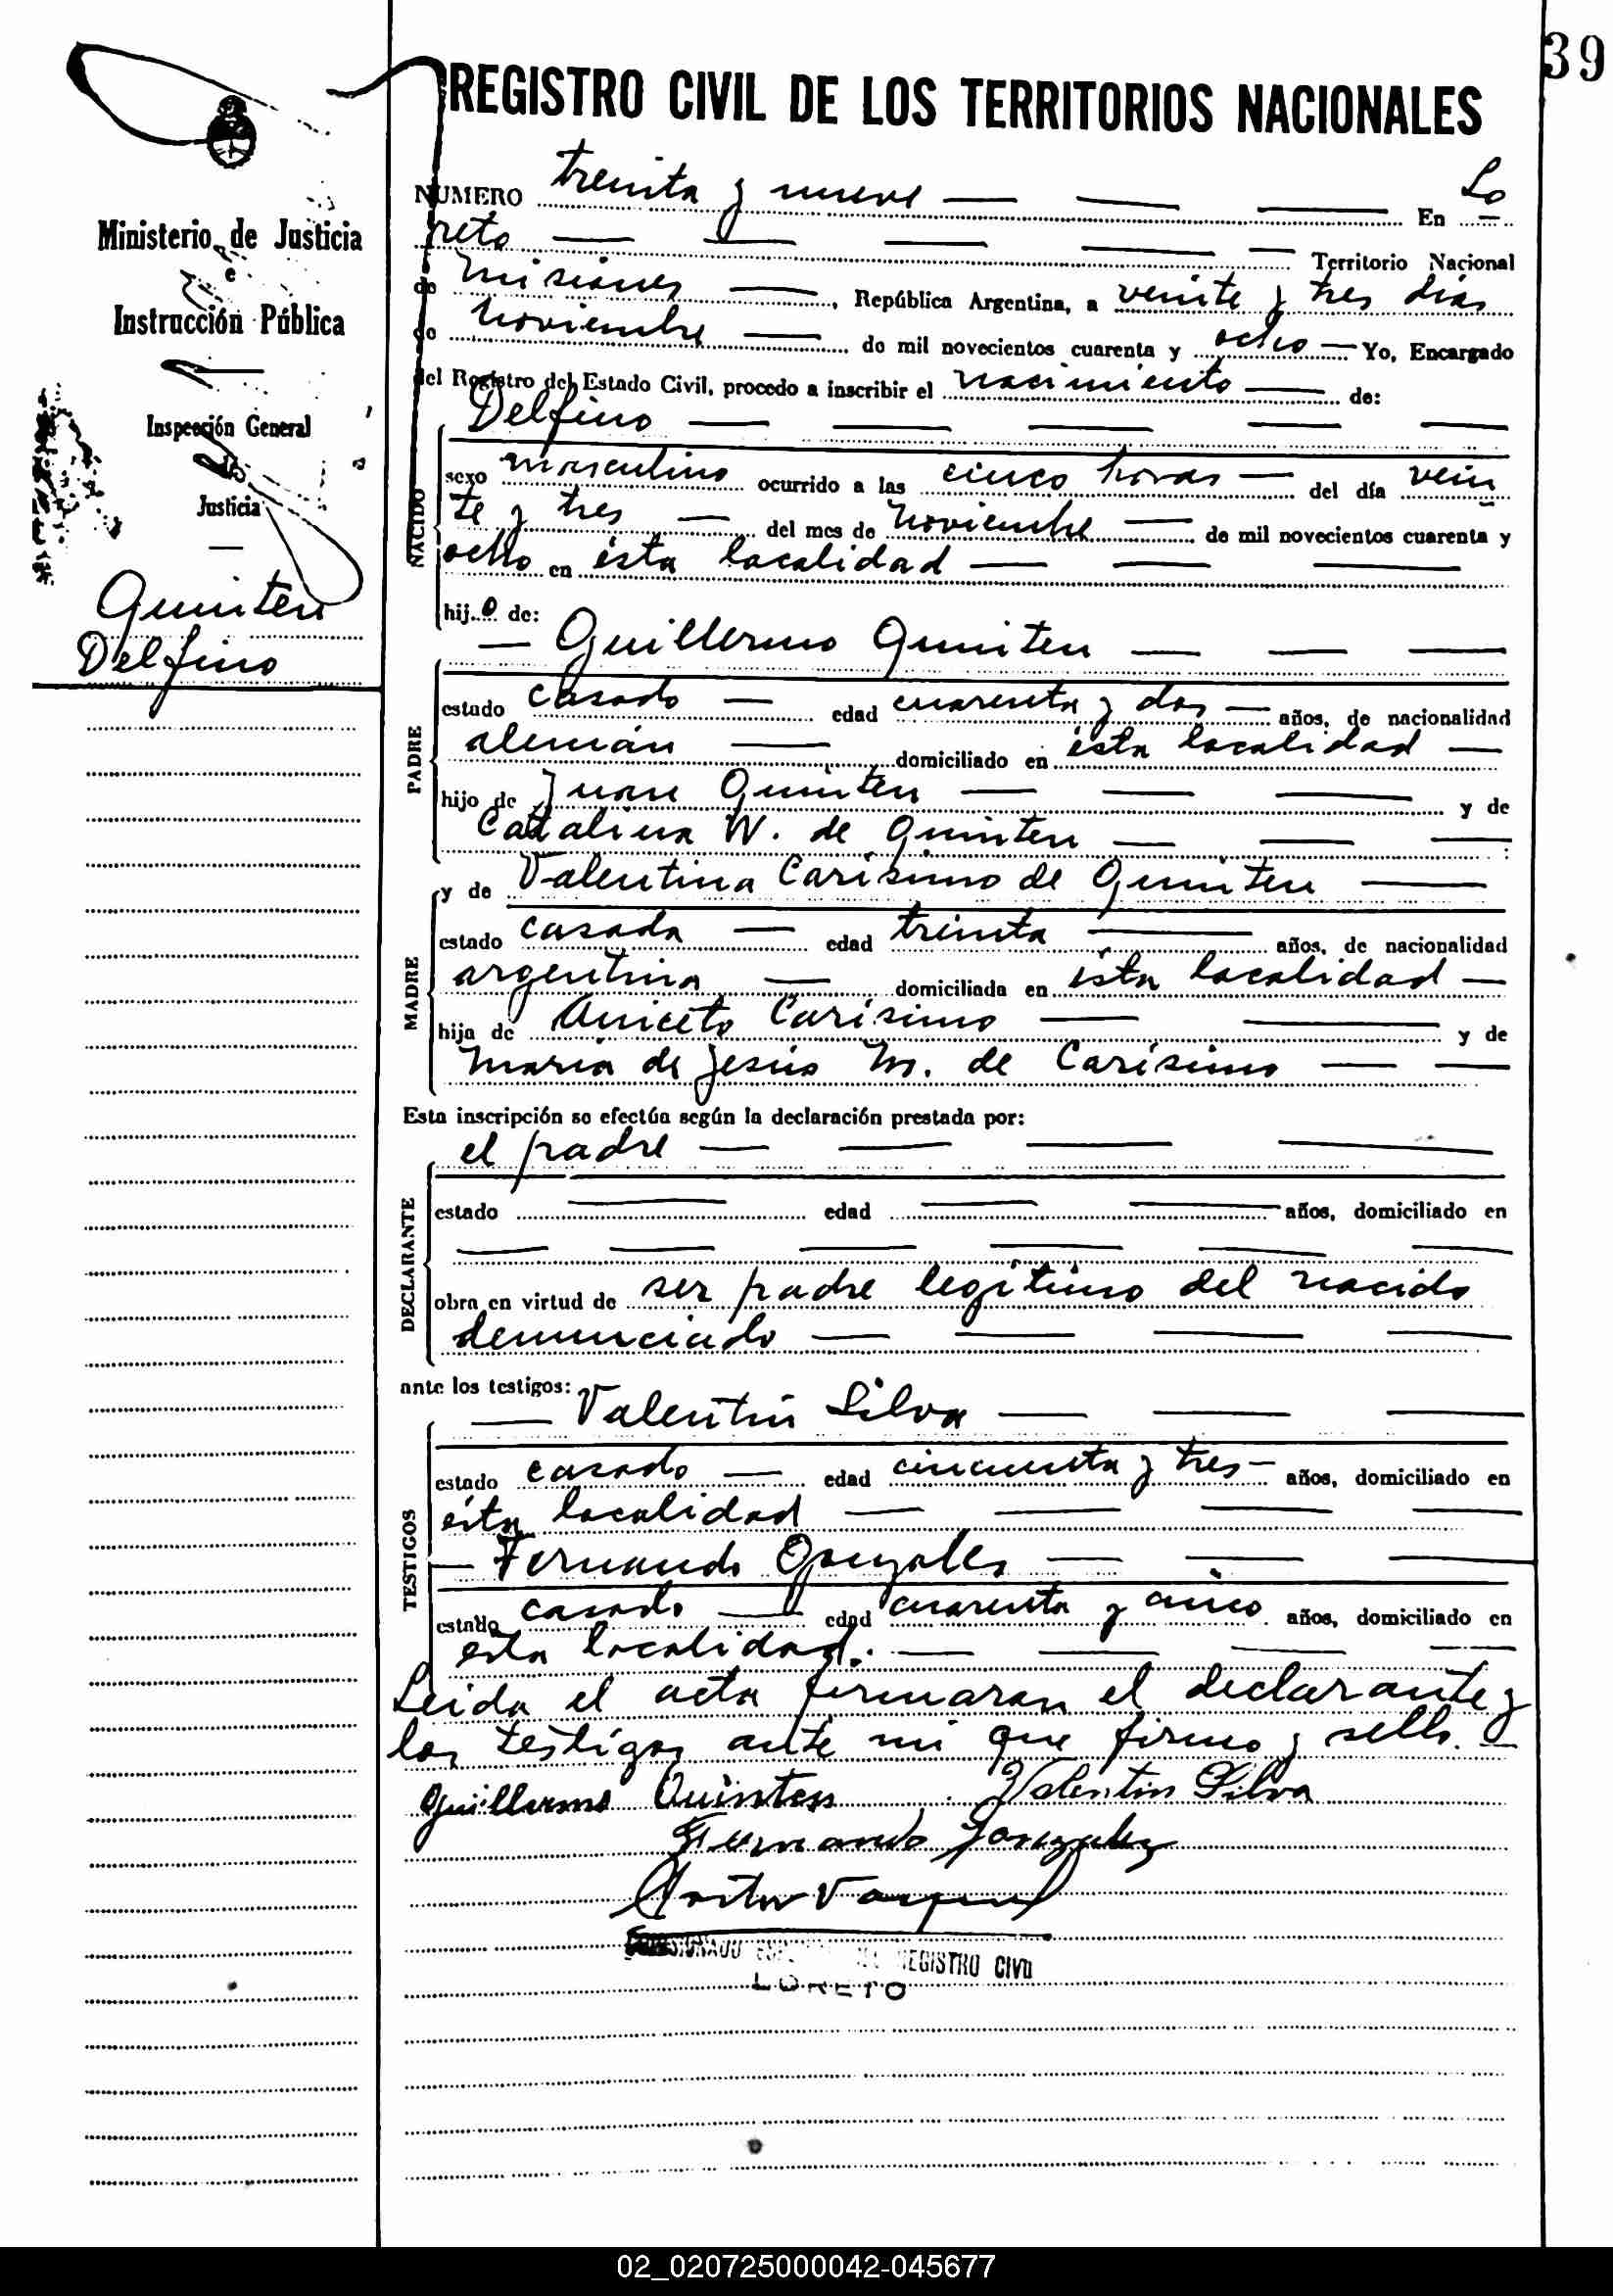 39
REGISTRO CIVIL DE LOS TERRITORIOS NACIONALES
Ministerio de Justicia
e
Instrucción Pública
Inspección General
de
Justicia
Quinten
Delfino
NUMERO treinta y nueve — — — En Lo
reto — — — — — Territorio Nacional
de Misiones —, República Argentina, a veinte y tres días
de noviembre — de mil novecientos cuarenta y ocho — Yo, Encargado
del Registro del Estado Civil, procedo a inscribir el nacimiento — de:
Delfino — — — — —
NACIDO
sexo masculino ocurrido a las cinco horas — del día vein
te y tres — del mes de noviembre — de mil novecientos cuarenta y
ocho en ésta localidad — — —
hijo de:
— Guillermo Quinten — — —
PADRE
estado casado — edad cuarenta y dos — años, de nacionalidad
alemán — domiciliado en ésta localidad —
hijo de Juan Quinten — — — y de
Catalina W. de Quinten — — —
y de Valentina Carísimo de Quinten —
MADRE
estado casada — edad treinta — años, de nacionalidad
argentina — domiciliada en ésta localidad —
hija de Aniceto Carísimo — — y de
María de Jesús M. de Carísimo — —
Esta inscripción se efectúa según la declaración prestada por:
el padre — — — —
DECLARANTE
estado — edad — — años, domiciliado en
— — — — — —
obra en virtud de ser padre legítimo del nacido
denunciado — — — —
ante los testigos:
— Valentín Silva — — —
TESTIGOS
estado casado — edad cincuenta y tres — años, domiciliado en
ésta localidad — — — —
— Fernando Gonzales — — —
estado casado — edad cuarenta y cinco años, domiciliado en
esta localidad. — — — —
Leida el acta firmaran el declarante y
los testigos ante mi que firmo y sello. —
Guillermo Quinten Valentin Silva
Fernando Gonzalez
REGISTRO CIVIL
LORETO
02_020725000042-045677